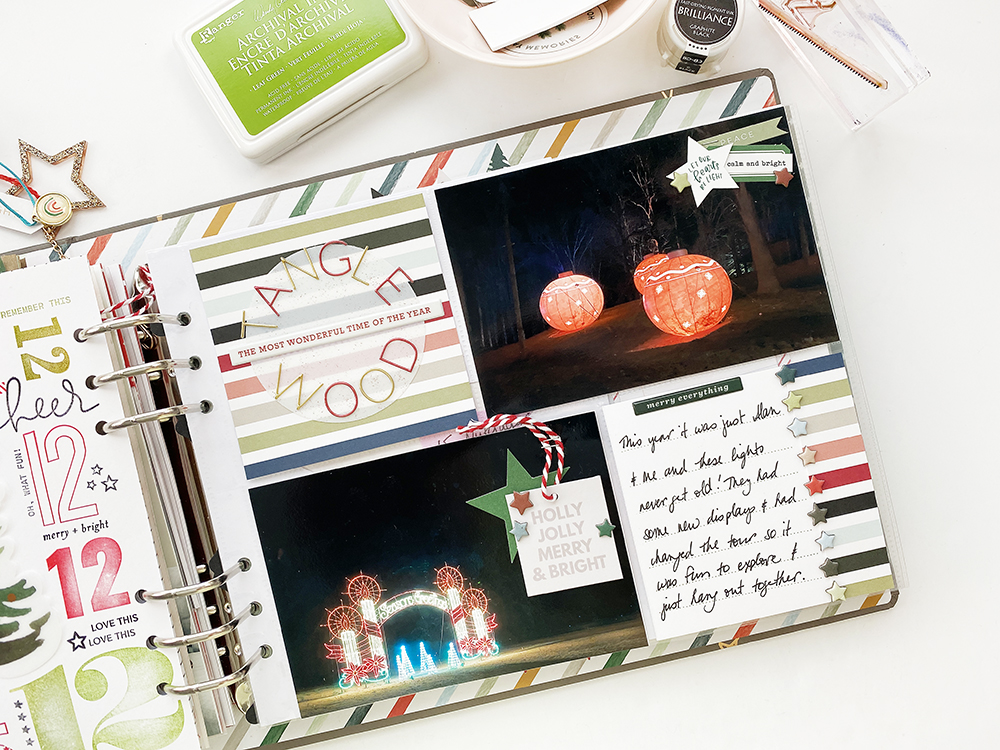 Ranger
ARCHIVAL INK
ENCRE D'ARCHIVAL
TINTA ARCHIVAL
LEAF GREEN • VERT FEUILLE • VERDE HOJA
MEMORIES
FAST-DRYING PIGMENT INK
BRILLIANCE
GRAPHITE
BLACK
REMEMBER THIS
12
cheer
OH, WHAT FUN!
12
merry + bright
12
LOVE THIS
LOVE THIS
12
TANGLE
THE MOST WONDERFUL TIME OF THE YEAR
WOOD
PEACE
LET OUR
hearts
BE LIGHT
calm and bright
HOLLY
JOLLY
MERRY
& BRIGHT
merry everything
This year it was just Alan
& me and these lights
never get old! They had
some new displays & had
changed the tour so it
was fun to explore &
just hang out together.